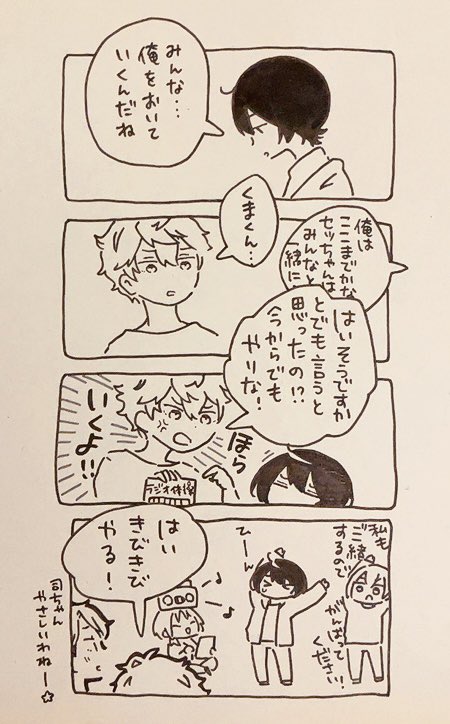 みんな…
俺をおいて
いくんだね
俺は
ここまでかな
セッちゃんは
みんなと
一緒に
くまくん…
はいそうですか
とでも言うと
思ったの!?
今からでも
やりな!
ほら
いくよ!!
ラジオ体操
私も
ご一緒
するので
がんばって
ください!
てーん
はい
きびきび
やる!
司ちゃん
やさしいわねー☆